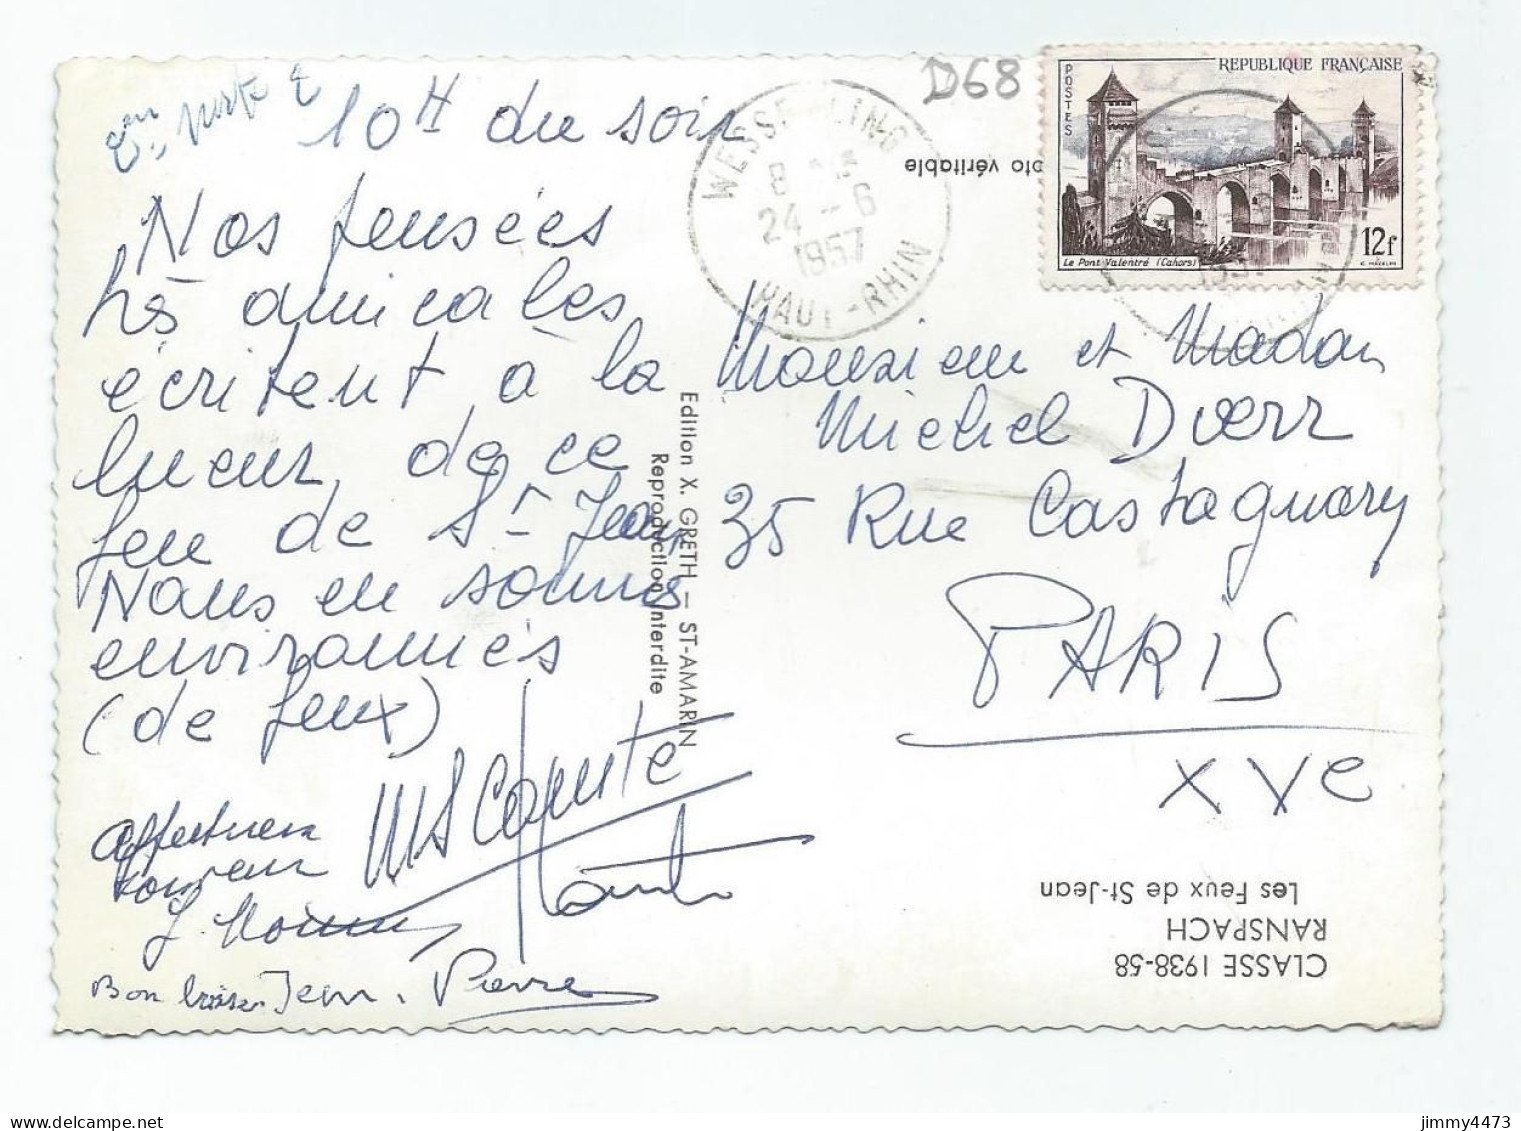 10H du soir
Nos pensées
très amicales
écritent à la
lueur de ce
feu de St-Jean
Nous en sommes
environnés
(de feux)
affectueux
Bon baiser Jean-Pierre
D68
WESSERLING
8H 15
24-6
1957
HAUT-RHIN
POSTES
REPUBLIQUE FRANÇAISE
Le Pont Valentré (Cahors)
12f
oto véritable
Monsieur et Madam
Michel Doerr
35 Rue Castagnary
PARIS
XVe
Edition X. GRETH - ST-AMARIN
Reproduction interdite
CLASSE 1938-58
RANSPACH
Les Feux de St-Jean
jimmy4473